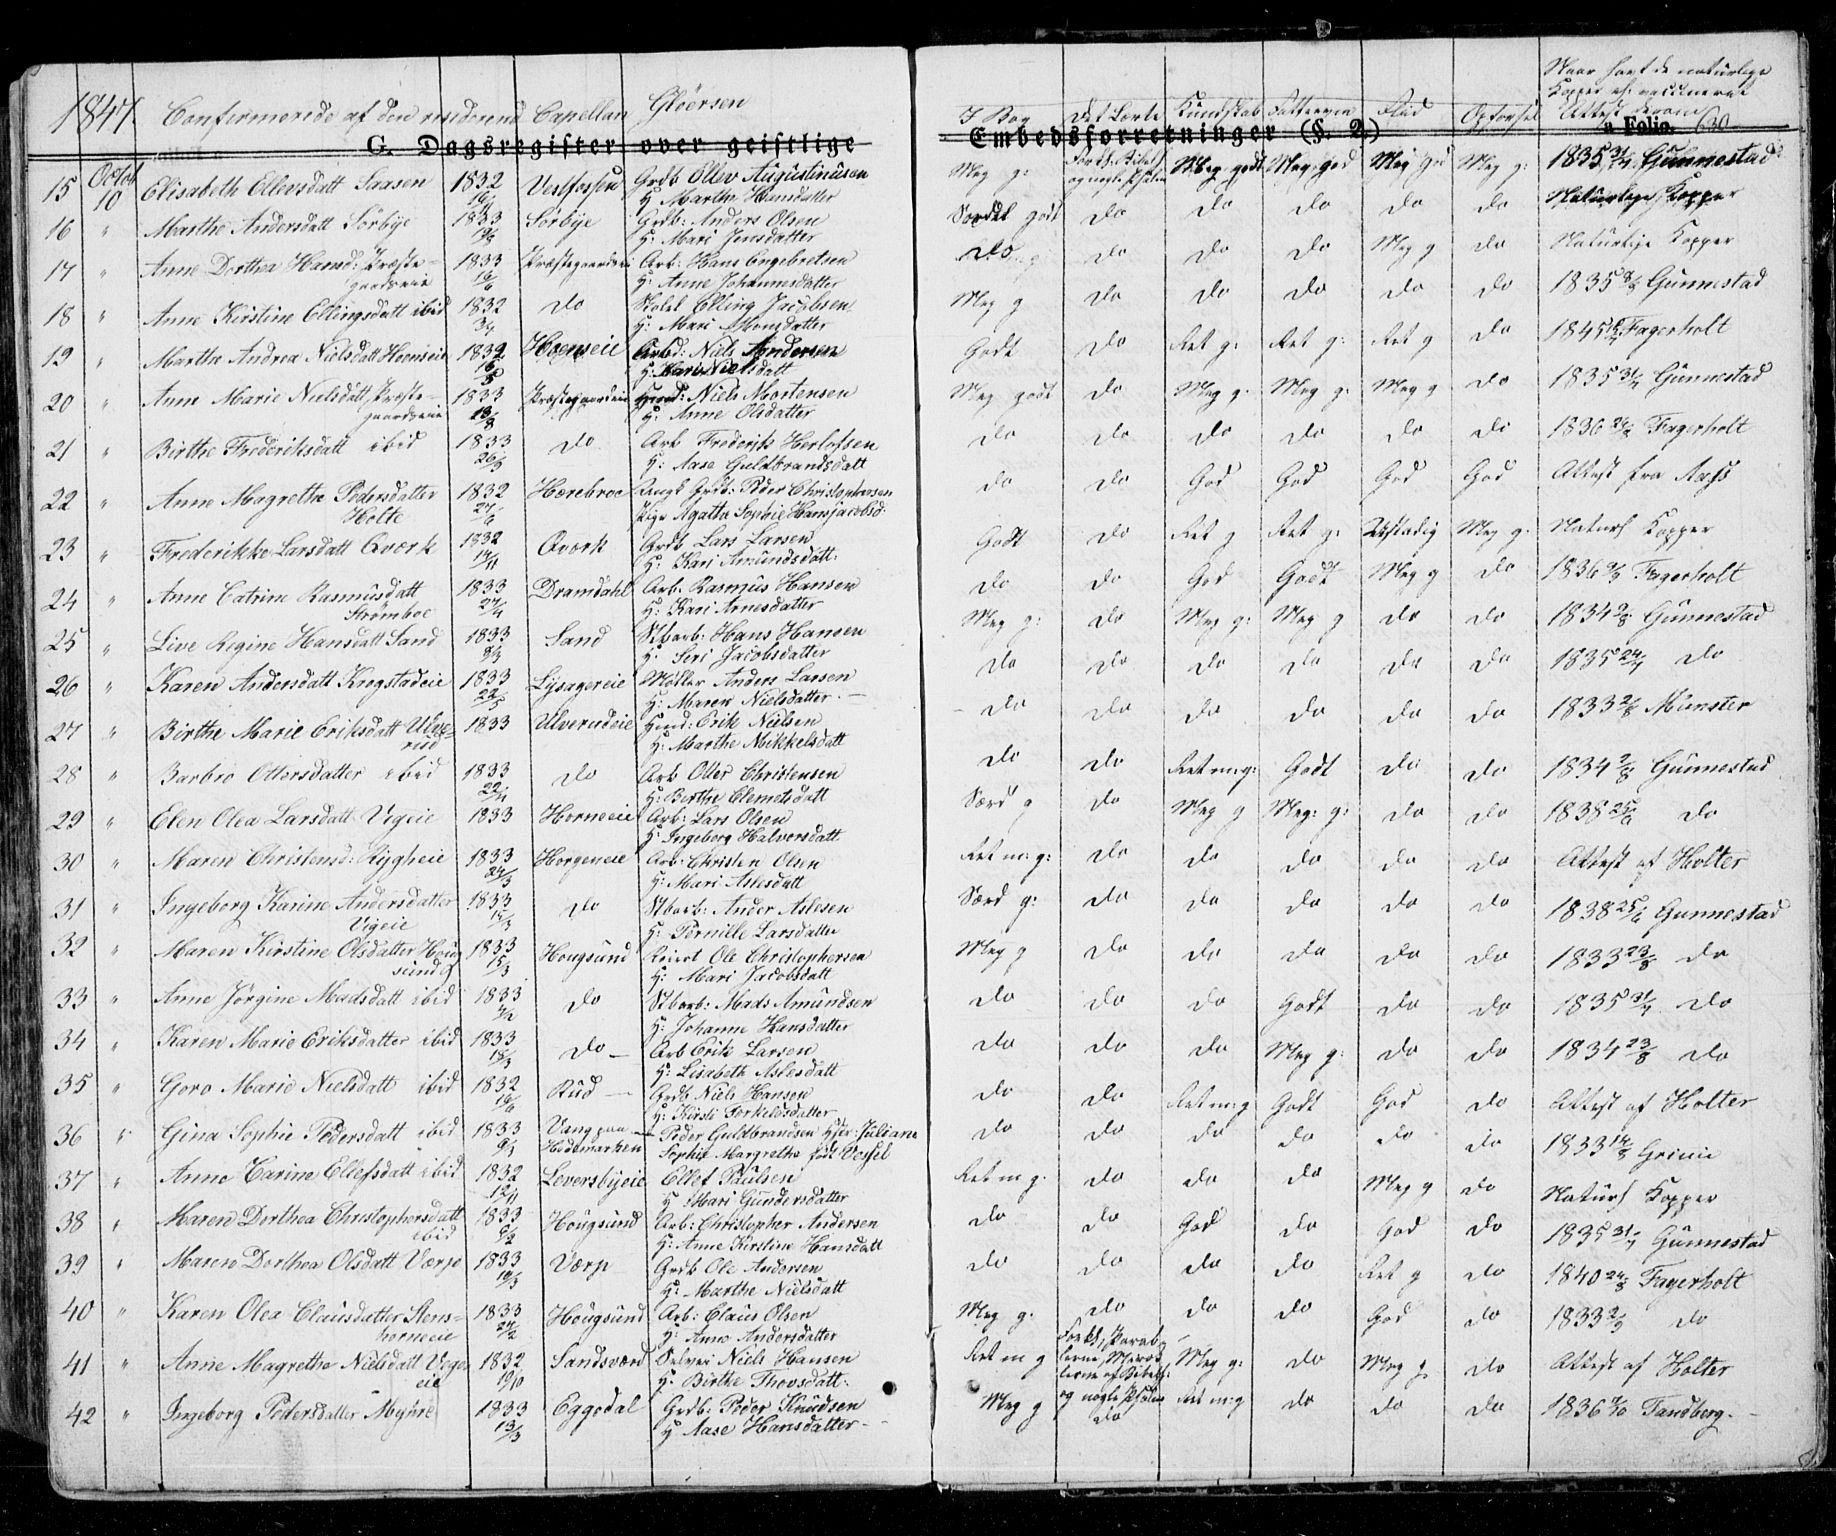 1847. Confirmerede af den residerend Capellan Gløersen
G. Dagsregister over geistlige
Embedsforretninger (§. 2.)
a Folio. 630
I Bog Det Lærte Kundskab Fatteevne Flid Opførsel
Naar havt de naturlige
Kopper el: vaccineret
Attest derom
15 Octob 10 Elisabeth Ellevsdatt Saasen 1832 Vestfossen Grdb Ellev Augustinusen Meg g: Meg godt Meg: god Meg God Meg g: 1835 31/7 Gunnestad
H Marthe Hansdatter
16 " Marthe Andersdatt Sørbye 1833 Sørbye Grdb: Anders Olsen Særdel godt do do do do do Naturlige Kopper
H: Mari Jensdatter
17 " Anne Dorthea Hansd: Præste- 1833 Præstegaardseie Arb: Hans Engebretsen do do do do Meg g do Naturlige Kopper
gaardseie H: Anne Johannesdatter
18 " Anne Kirstine Ellingsdatt ibid 1832 do Elling Jacobsen Meg g do do do do do 1835 Gunnestad
H: Mari Monsdatter
19 " Marthe Andrea Nielsdatt Hoenseie 1832 Hoenseie Arbd: Niels Andersen Godt do Ret g: Ret g: Ret g do 1845 Fagerholt
H: Kari Nielsdatt
20 " Anne Marie Nielsdatt Præste- 1833 Præstegaardseie Niels Mortensen Meg godt do Meg g: Meg g: Meg g do 1835 31/7 Gunnestad
gaardseie 13/8 H: Anne Olsdatter
21 " Birthe Frederiksdatt ibid 1833 do Arb Frederik Herlofsen do do do do do do 1836 Fagerholt
26/3 H: Aase Guldbrandsdatt
22 " Anne Magrethe Pedersdatter 1832 Horebroe Ungk Grdb: Peder Christophersen do do God God God God Attest fra Aass
Holte Pige Agatha Sophie Hansjacobsd:
23 " Frederikke Larsdatt Qværk 1832 Qværk Grdb Lars Larsen Godt do Ret g Ret g: Ustadig Meg g: Naturl Kopper
H: Kari Amundsdatt:
24 " Anne Catrine Rasmusdatt 1833 Dramdahl Arb: Rasmus Hansen do do God Godt Meg g do 1836 Fagerholt
Strømboe H: Kari Arnesdatter
25 " Live Regine Hansdatt Sand 1833 Sand Stbarb: Hans Hansen Meg g: do Meg g: Meg g do do 1834 Gunnestad
H: Siri Jacobsdatter
26 " Karen Andersdatt Krogstadeie 1833 Lysagereie Møller Anders Larsen do do do do do do 1835 do
22/5 H: Maren Nielsdatter
27 " Birthe Marie Eriksdatt Ulve- 1833 Ulverudeie Erik Nielsen do do do do do do 1833 Munster
rud H: Marthe Mikkelsdatt
28 " Barbro Ottersdatter ibid 1833 do Arb Otter Christensen do do Ret m: g: Godt do do 1834 Gunnestad
H: Berthe Clemetsdatt
29 " Elen Olea Larsdatt Vegeie 1833 Horneeie Arb: Lars Olsen Særd g do Meg g Meg: g: do do 1838 do
H: Ingeborg Halvorsdatt
30 " Maren Christensd: Rygheie 1833 Horgeneie Arb: Christen Olsen Ret m: g: do do do do do Attest af Holter
24/3 H: Mari Aslesdatt
31 " Ingeborg Karine Andersdatter 1833 do Stbarb: Ander Aslesen Særd g: do do do do do 1838 Gunnestad
Vegeie H: Pernille Larsdatter
32 " Maren Kirstine Olsdatter Houg 1833 Hougsund Ole Christophersen Meg g do do do do do 1833 23/8 do
sund H: Mari Jacobsdatt
33 " Anne Jørgine Madsdatt ibid 1833 do Stbarb: Mads Amundsen do do do Godt do do 1835 31/7 do
H: Johanne Hansdatter
34 " Karen Marie Eriksdatter ibid 1833 do Arb Erik Larsen do do do Meg g: do do 1834 23/8 do
H: Lisabeth Aslesdatt
35 " Goro Marie Nielsdatt ibid 1832 Rud Grdb Niels Hansen do do Ret m: g Godt God do Attest af Holter
H: Kirsti Torkeldsdatter
36 " Gina Sophie Pedersdatt ibid 1833 Vang paa Peder Guldbrandsen Hstr: Juliane do do do do do do 1833
Hedemarken Sophie Margrethe født Vessel
37 " Anne Carine Ellefsdatt ibid 1832 Leversbyeie Ellef Paulsen Ret m g. do do do Meg g do Naturl Kopper
12/11 H Mari Gundersdatter
38 " Maren Dorthea Christophersdatt 1833 Hougsund Arb: Christopher Andersen do do God do God do 1835 31/7 Gunnestad
ibid H: Anne Kirstine Hansdatt
39 " Maren Dorthea Olsdatt Værp 1833 Værp Grdb Ole Andersen do do do do Ret g do 1840 Fagerholt
H: Marthe Nielsdatt
40 " Karen Olea Clausdatter Stens- 1833 Hougsund Arb: Claus Olsen Meg g: do do do God do 1833 do
horneeie H: Anne Andersdatter
41 " Anne Magrethe Nielsdatt Vege 1832 Sandsværd Niels Hansen Ret m g Meg g: do Meg g do Attest af Holter
eie H: Birthe Thovsdatt:
42 " Ingeborg Pedersdatter Myhre 1833 Eggedal Grdb: Peder Knudsen Meg g og nogle Psalm do Ret m: g do do do 1836 Tandberg.
13/3 H Aase Hansdatter